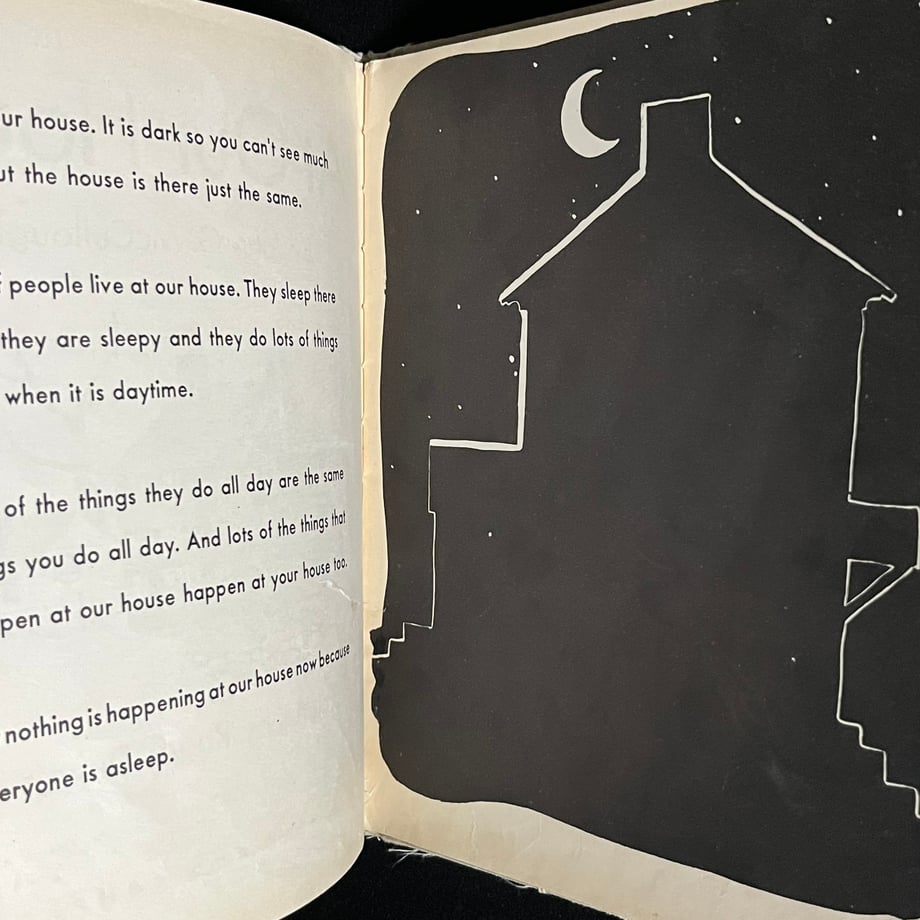 ur house. It is dark so you can't see much
ut the house is there just the same.
people live at our house. They sleep there
they are sleepy and they do lots of things
when it is daytime.
of the things they do all day are the same
gs you do all day. And lots of the things that
pen at our house happen at your house too.
nothing is happening at our house now because
eryone is asleep.